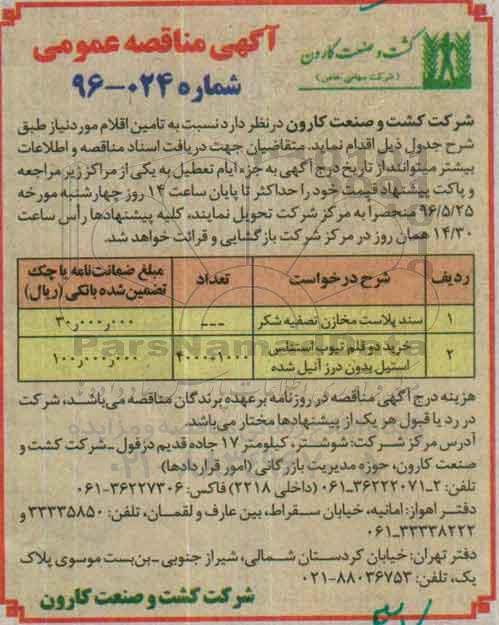 آگهی مناقصه عمومی
شماره ۰۲۴-۹۶
کشت و صنعت کارون
(شرکت سهامی خاص)
شرکت کشت و صنعت کارون در نظر دارد نسبت به تامین اقلام مورد نیاز طبق
شرح جدول ذیل اقدام نماید. متقاضیان جهت دریافت اسناد مناقصه و اطلاعات
بیشتر میتوانند از تاریخ درج آگهی به جزء ایام تعطیل به یکی از مراکز زیر مراجعه
و پاکت پیشنهاد قیمت خود را حداکثر تا پایان ساعت ۱۴ روز چهارشنبه مورخه
۹۶/۵/۲۵ منحصراً به مرکز شرکت تحویل نمایند، کلیه پیشنهادها رأس ساعت
۱۴/۳۰ همان روز در مرکز شرکت بازگشایی و قرائت خواهد شد.
ردیف شرح درخواست تعداد مبلغ ضمانت‌نامه یا چک تضمین شده بانکی (ریال)
۱ سند پلاست مخازن تصفیه شکر --- ۳۰,۰۰۰,۰۰۰
۲ خرید دو قلم تیوب استنلس استیل بدون درز آنیل شده ۴۰۰۰+۱۰۰۰ ۱۰۰,۰۰۰,۰۰۰
هزینه درج آگهی مناقصه در روزنامه بر عهده برندگان مناقصه می‌باشد، شرکت
در رد یا قبول هر یک از پیشنهادها مختار می‌باشد.
آدرس مرکز شرکت: شوشتر، کیلومتر ۱۷ جاده قدیم دزفول - شرکت کشت و
صنعت کارون، حوزه مدیریت بازرگانی (امور قراردادها)
تلفن: ۲-۳۶۲۲۲۰۷۱-۰۶۱ (داخلی ۲۲۱۸) فاکس: ۳۶۲۲۷۳۰۶-۰۶۱
دفتر اهواز: امانیه، خیابان سقراط، بین عارف و لقمان، تلفن: ۳۳۳۳۵۸۵۰ و
۳۳۳۳۸۲۲۲-۰۶۱
دفتر تهران: خیابان کردستان شمالی، شیراز جنوبی - بن‌بست موسوی پلاک
یک، تلفن: ۸۸۰۳۶۷۵۳-۰۲۱
شرکت کشت و صنعت کارون